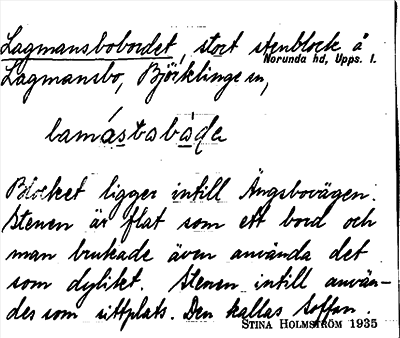 Lagmansbobordet, stort stenblock å
Norunda hd, Upps. l.
Lagmansbo, Björklinge sn,
lamásbobàde
Blocket ligger intill Ängsbovägen.
Stenen är flat som ett bord och
man brukade även använda det
som dylikt. Stenen intill använ-
des som sittplats. Den kallas Soffan.
STINA HOLMSTRÖM 1935